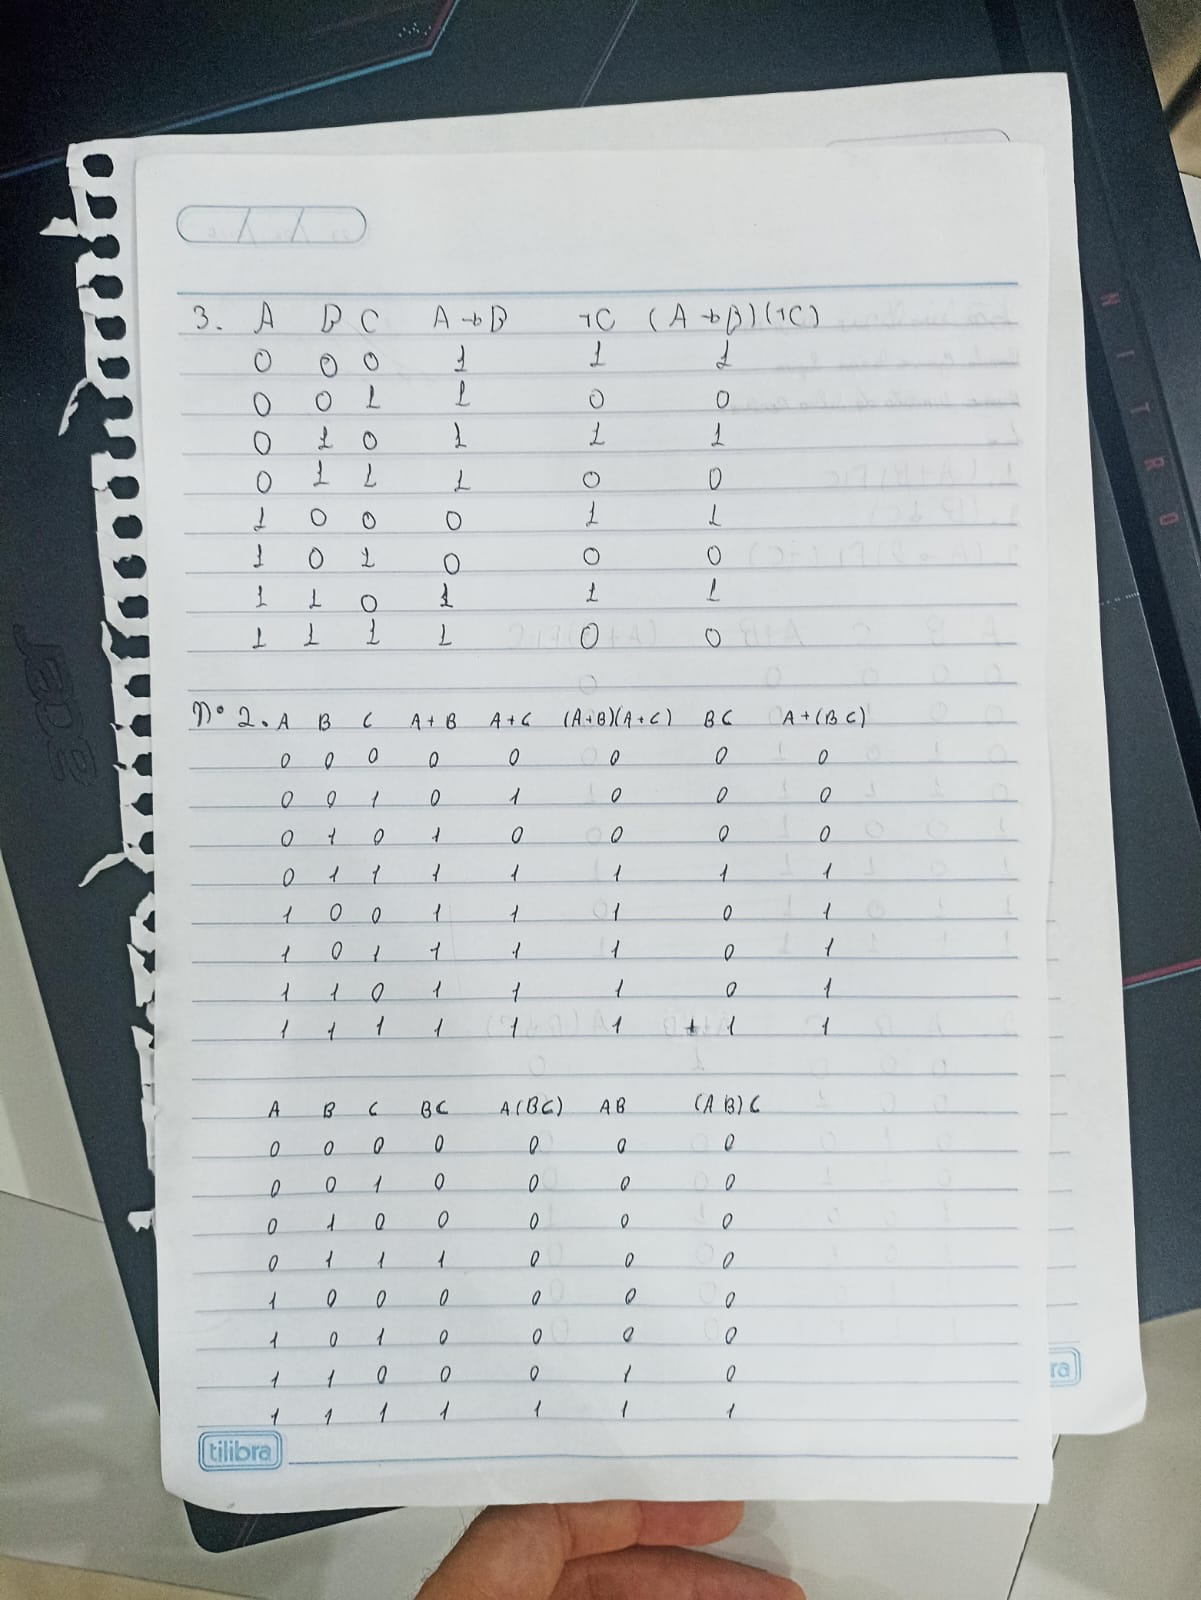 3. A B C A→B ¬C (A→B)(¬C)
0 0 0 1 1 1
0 0 1 1 0 0
0 1 0 1 1 1
0 1 1 1 0 0
1 0 0 0 1 1
1 0 1 0 0 0
1 1 0 1 1 1
1 1 1 1 0 0
nº 2. A B C A+B A+C (A+B)(A+C) BC A+(BC)
0 0 0 0 0 0 0 0
0 0 1 0 1 0 0 0
0 1 0 1 0 0 0 0
0 1 1 1 1 1 1 1
1 0 0 1 1 1 0 1
1 0 1 1 1 1 0 1
1 1 0 1 1 1 0 1
1 1 1 1 1 1 1 1
A B C BC A(BC) AB (AB)C
0 0 0 0 0 0 0
0 0 1 0 0 0 0
0 1 0 0 0 0 0
0 1 1 1 0 0 0
1 0 0 0 0 0 0
1 0 1 0 0 0 0
1 1 0 0 0 1 0
1 1 1 1 1 1 1
tilibra
ra
acer
NITRO